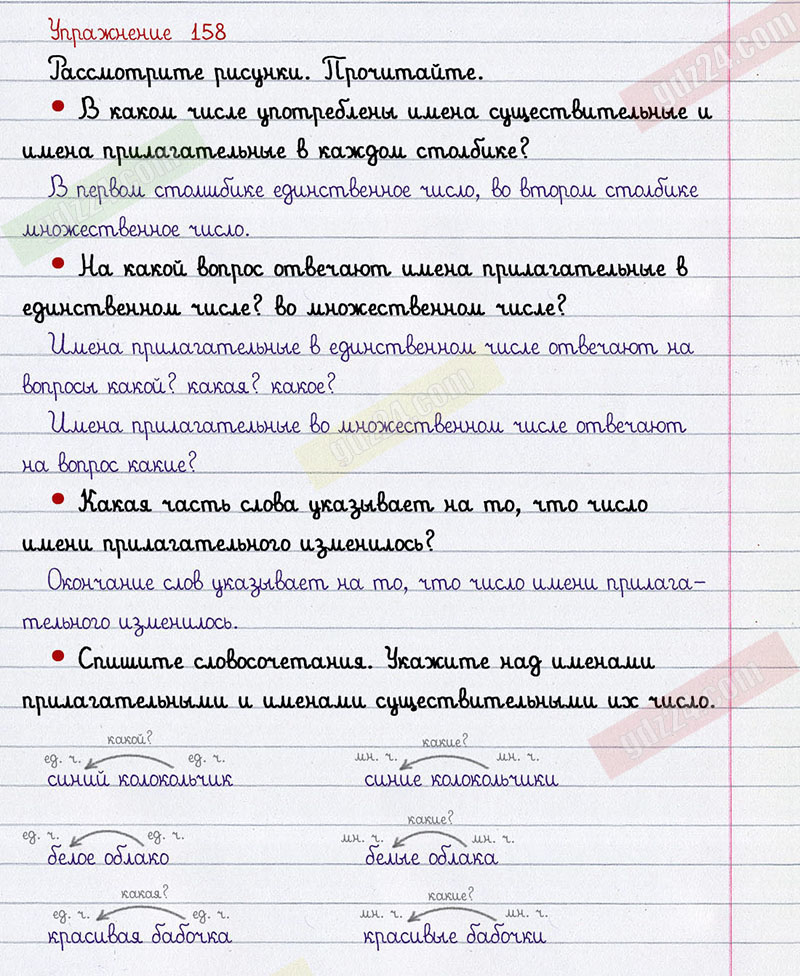 Упражнение 158
Рассмотрите рисунки. Прочитайте.
• В каком числе употреблены имена существительные и
имена прилагательные в каждом столбике?
В первом столшбике единственное число, во втором столбике
множественное число.
• На какой вопрос отвечают имена прилагательные в
единственном числе? во множественном числе?
Имена прилагательные в единственном числе отвечают на
вопросы какой? какая? какое?
Имена прилагательные во множественном числе отвечают
на вопрос какие?
• Какая часть слова указывает на то, что число
имени прилагательного изменилось?
Окончание слов указывает на то, что число имени прилага–
тельного изменилось.
• Спишите словосочетания. Укажите над именами
прилагательными и именами существительными их число.
какой? какие?
ед. ч. ед. ч. мн. ч. мн. ч.
синий колокольчик синие колокольчики
какие?
ед. ч. ед. ч. мн. ч. мн. ч.
белое облако белые облака
какая? какие?
ед. ч. ед. ч. мн. ч. мн. ч.
красивая бабочка красивые бабочки
gdz24.com
gdz24.com
gdz24.com
gdz24.com